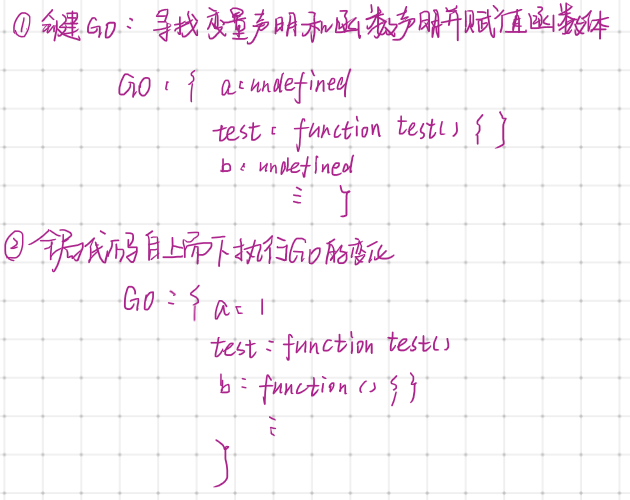 ① 创建GO：寻找变量声明和函数声明并赋值函数体
GO：{ a：undefined
test：function test() { }
b：undefined
⋮ }
② 全局代码自上而下执行GO的变化
GO：{ a：1
test：function test()
b：function () { }
⋮
}